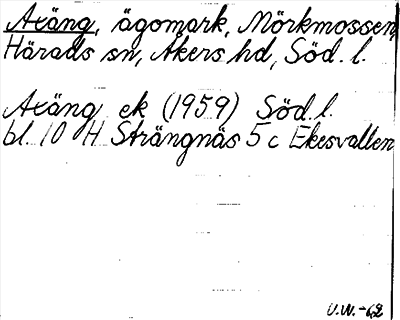 Aläng, ägomark, Mörkmossen,
Härads sn, Åkers hd, Söd. l.
Aläng ek (1959) Söd. l.
bl. 10 H Strängnäs 5 c Ekesvallen
U.W. -62